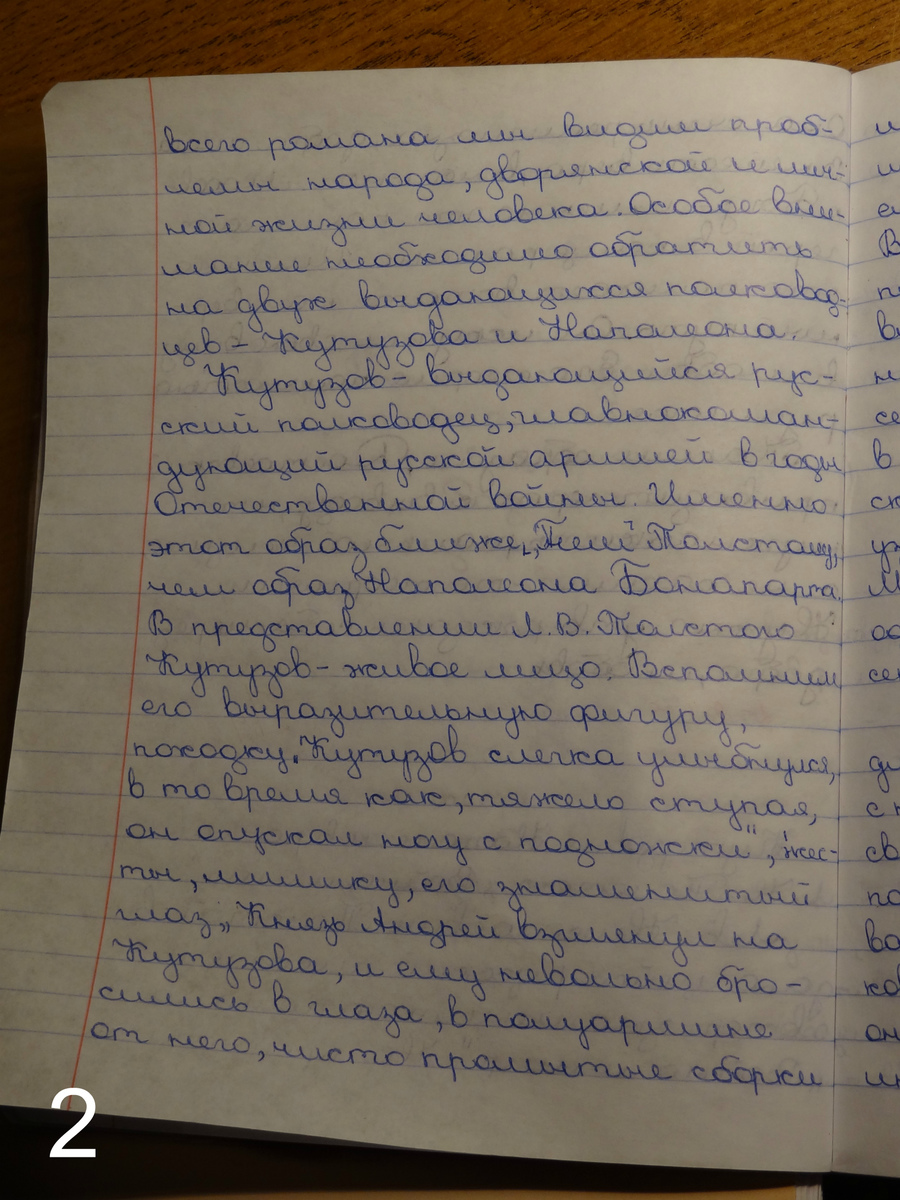 всего романа мы видим проб-
лемы народа, дворянской и лич-
ной жизни человека. Особое вни-
мание необходимо обратить
на двух выдающихся полковод-
цев - Кутузова и Наполеона.
Кутузов - выдающийся рус-
ский полководец, главнокоман-
дующий русской армией в годы
Отечественной войны. Именно
этот образ ближе Толстому,
чем образ Наполеона Бонапарта.
В представлении Л.В. Толстого
Кутузов - живое лицо. Вспомним
его выразительную фигуру,
походку „Кутузов слегка улыбнулся,
в то время как, тяжело ступая,
он опускал ногу с подножки", жес-
ты, мимику, его знаменитый
глаз „Князь Андрей взглянул на
Кутузова, и ему невольно бро-
сились в глаза, в полуаршине
от него, чисто промытые сборки
и
ш
ел
В
п
в
н
се
в
ск
уж
М
ос
се
ди
с н
св
по
во
ко
он
2